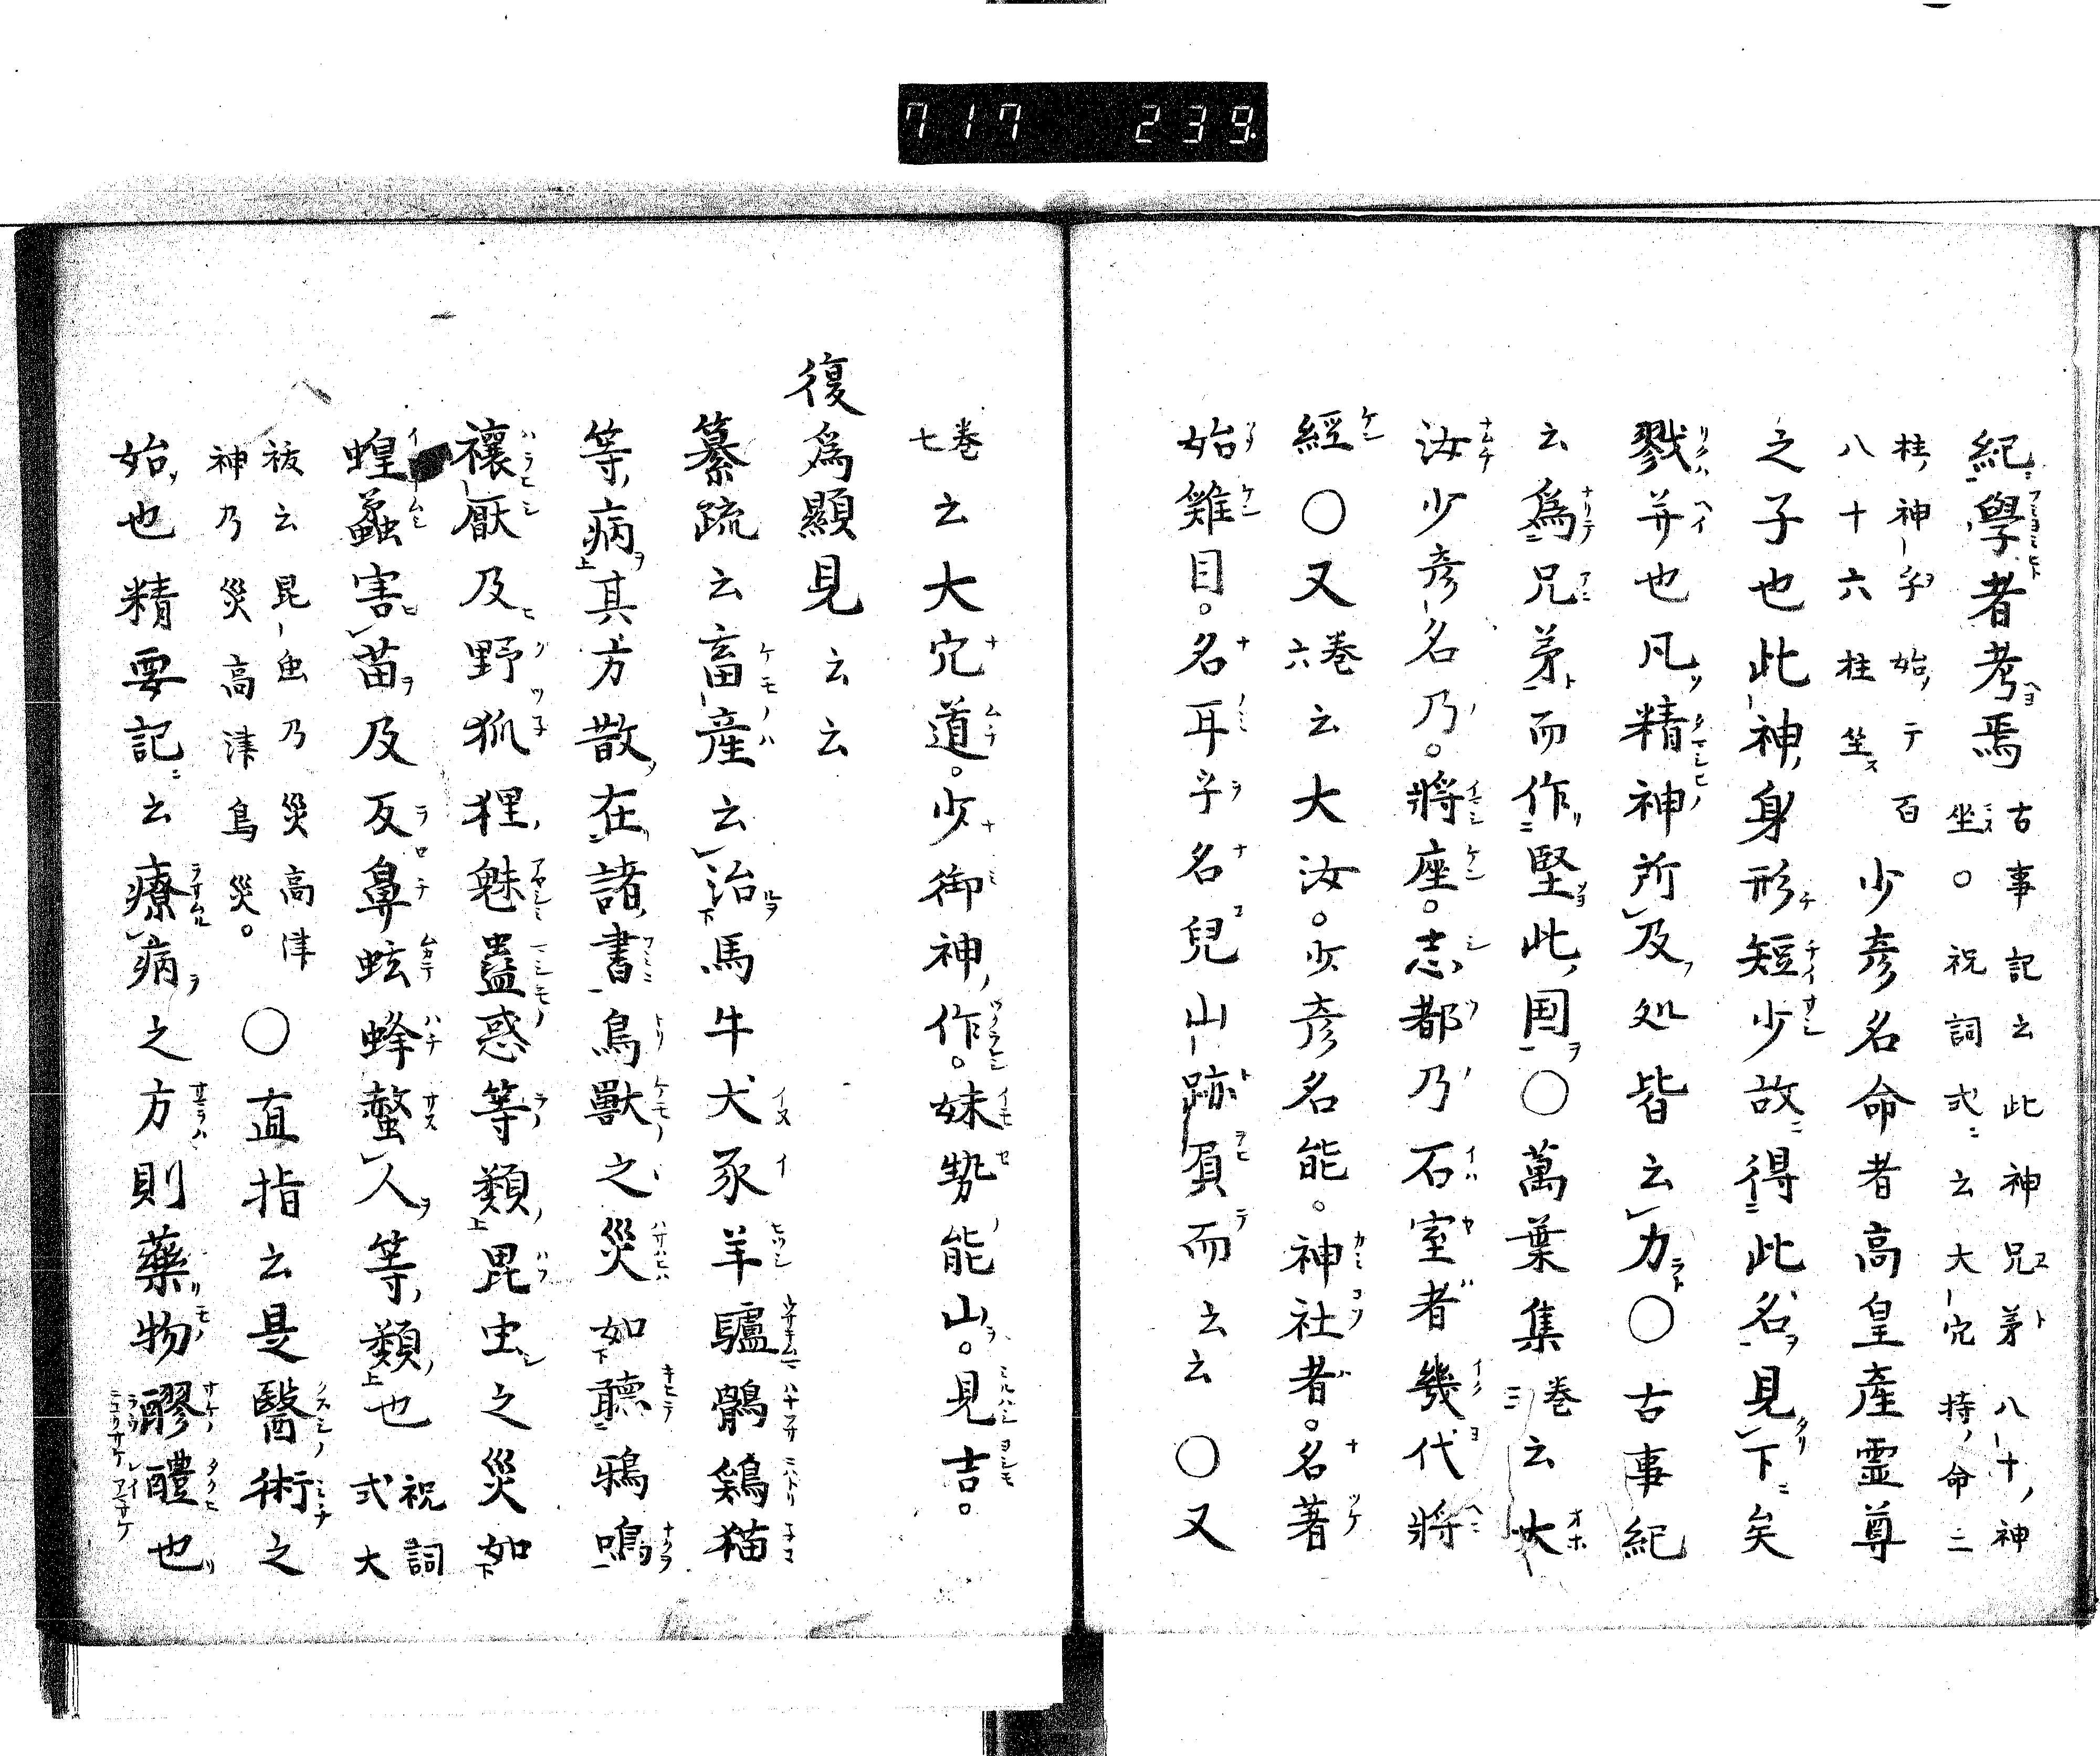 717 239
紀學者考焉 古事記云此神兄弟八十神
坐。祝詞式云大穴持命二
柱神子始テ百
八十六柱坐 少彦名命者高皇產霊尊
之子也此神身形短少故得此名見下矣
戮并也凡精神所及処皆云力〇古事紀
云爲兄弟而作堅此国〇萬葉集三巻云大
汝少彦名乃。將座。志都乃石室者幾代將
經〇又六巻云大汝。少彦名能。神社者。名著
始雞目。名耳乎名兒山跡負而云云〇又
七巻云大穴道。少御神作。妹勢能山。見吉。
復爲顯見云云
纂疏云畜產云治馬牛犬豕羊驢鶻鷄猫
等病其方散在諸書鳥獸之災如聽鴉鳴
禳厭及野狐狸魅蠱惑等類昆虫之災如
蝗蟊害苗及反鼻蚿蜂螫人等類也 祝詞
式大
祓云昆虫乃災高津
神乃災高津鳥災。〇直指云是醫術之
始也精要記云療病之方則藥物醪醴也